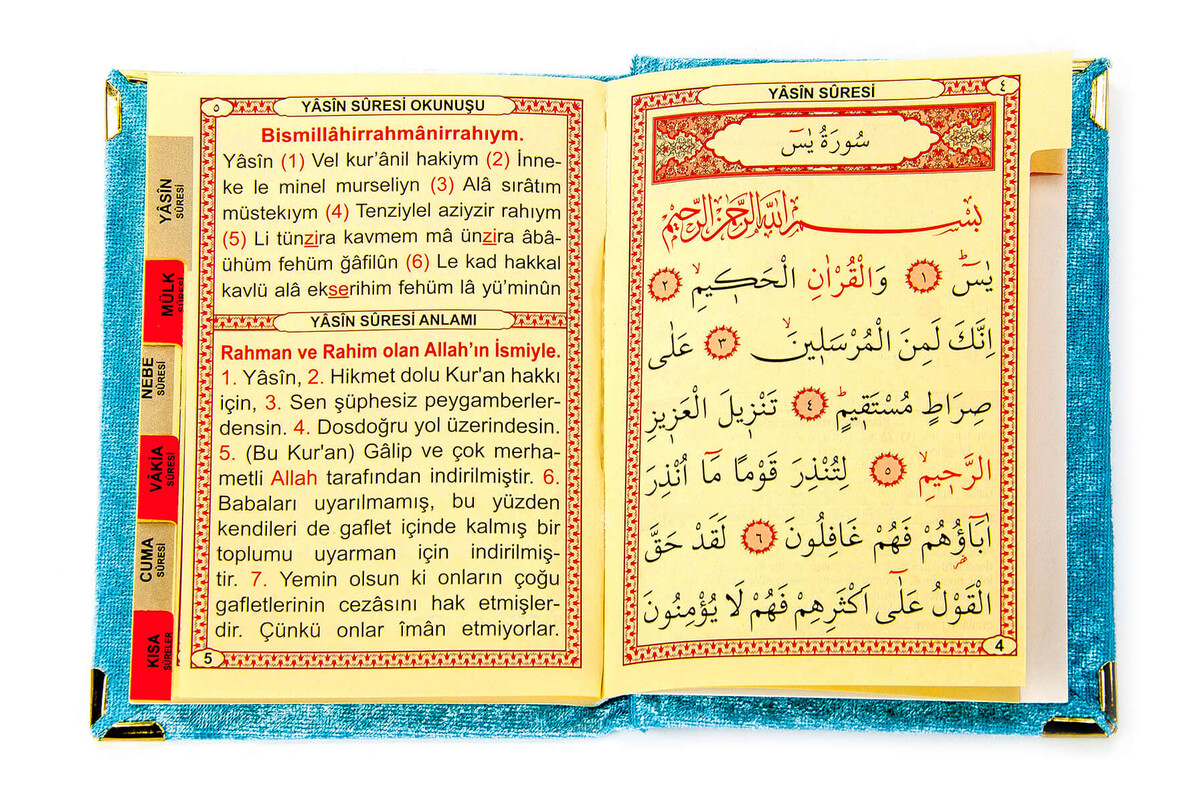 YÂSÎN SÛRESİ
٤
سُورَةُ يٰسٓ
بِسْمِ اللّٰهِ الرَّحْمٰنِ الرَّحٖيمِ
يٰسٓۚ ﴿١﴾ وَالْقُرْاٰنِ الْحَكٖيمِۙ ﴿٢﴾
اِنَّكَ لَمِنَ الْمُرْسَلٖينَۙ ﴿٣﴾ عَلٰى
صِرَاطٍ مُسْتَقٖيمٍۜ ﴿٤﴾ تَنْزٖيلَ الْعَزٖيزِ
الرَّحٖيمِۙ ﴿٥﴾ لِتُنْذِرَ قَوْمًا مَٓا اُنْذِرَ
اٰبَٓاؤُ۬هُمْ فَهُمْ غَافِلُونَ ﴿٦﴾ لَقَدْ حَقَّ
الْقَوْلُ عَلٰٓى اَكْثَرِهِمْ فَهُمْ لَا يُؤْمِنُونَ
4
٥
YÂSÎN SÛRESİ OKUNUŞU
Bismillâhirrahmânirrahıym.
Yâsîn (1) Vel kur’ânil hakiym (2) İnne-
ke le minel murseliyn (3) Alâ sırâtım
müstekıym (4) Tenziylel aziyzir rahıym
(5) Li tünzira kavmem mâ ünzira âbâ-
ühüm fehüm ğâfilûn (6) Le kad hakkal
kavlü alâ ekserihim fehüm lâ yü’minûn
YÂSÎN SÛRESİ ANLAMI
Rahman ve Rahim olan Allah’ın İsmiyle.
1. Yâsîn, 2. Hikmet dolu Kur'an hakkı
için, 3. Sen şüphesiz peygamberler-
densin. 4. Dosdoğru yol üzerindesin.
5. (Bu Kur'an) Gâlip ve çok merha-
metli Allah tarafından indirilmiştir. 6.
Babaları uyarılmamış, bu yüzden
kendileri de gaflet içinde kalmış bir
toplumu uyarman için indirilmiş-
tir. 7. Yemin olsun ki onların çoğu
gafletlerinin cezâsını hak etmişler-
dir. Çünkü onlar îmân etmiyorlar.
5
YÂSÎN
SÛRESİ
MÜLK
SÛRESİ
NEBE
SÛRESİ
VÂKIA
SÛRESİ
CUMA
SÛRESİ
KISA
SÛRELER